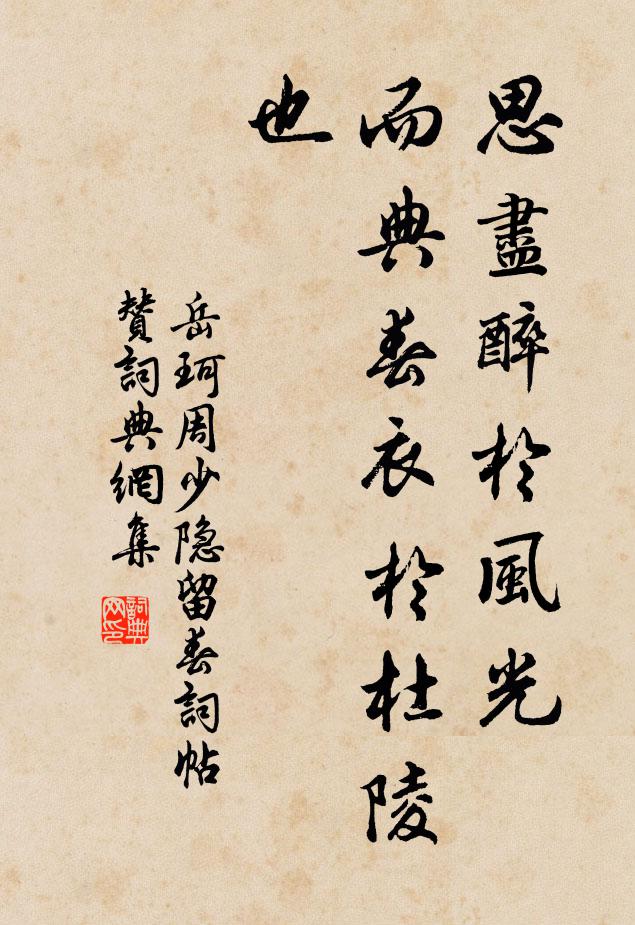 思盡醉於風光
而典春衣於杜陵
也
岳珂周少隐留春詞帖
賛詞典網集
詞典
网印